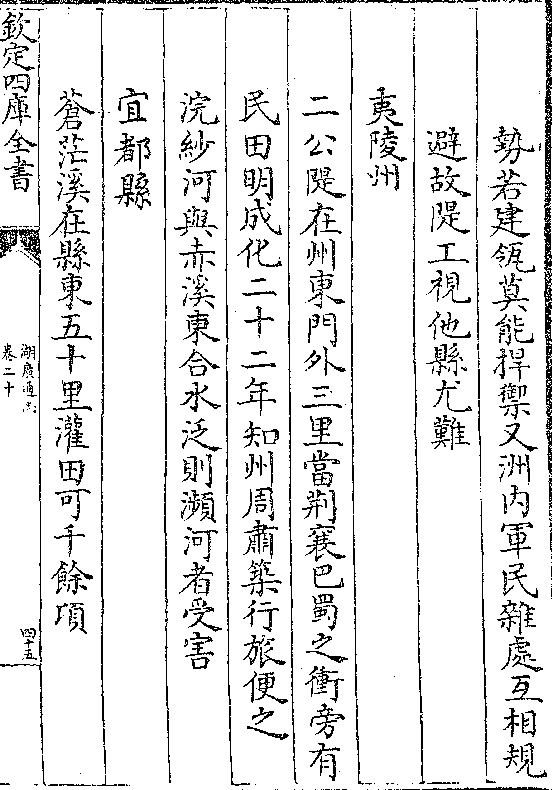 勢若建瓴莫能捍禦又洲内軍民雜處互相規
避故隄工視他縣尤難
夷陵州
二公隄在州東門外三里當荆襄巴蜀之衝旁有
民田明成化二十二年知州周肅築行旅便之
浣紗河與赤溪東合水泛則瀕河者受害
宜都縣
蒼茫溪在縣東五十里灌田可千餘項
欽定四庫全書
湖廣通志
卷二十
四十五